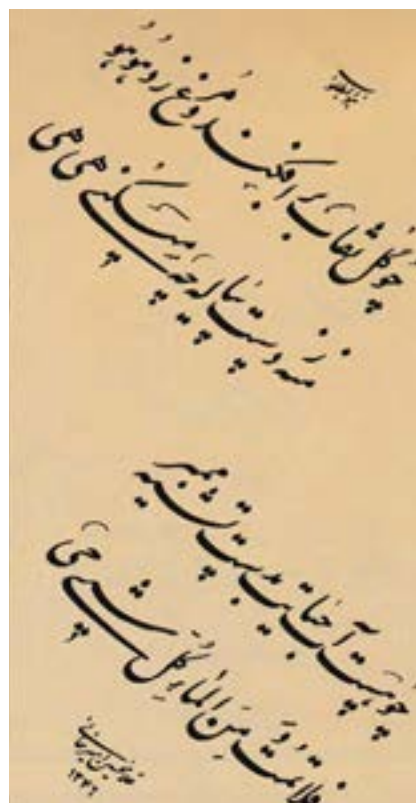 چو گل نقاب برافکند و مرغ زد هو هو
منه ز دست پیاله چه میکنی هی هی
چو هست آب حیاتت بدست تشنه ممیر
فلا تمت و من الماء کل شیء حی
غلامحسین امیرخانی